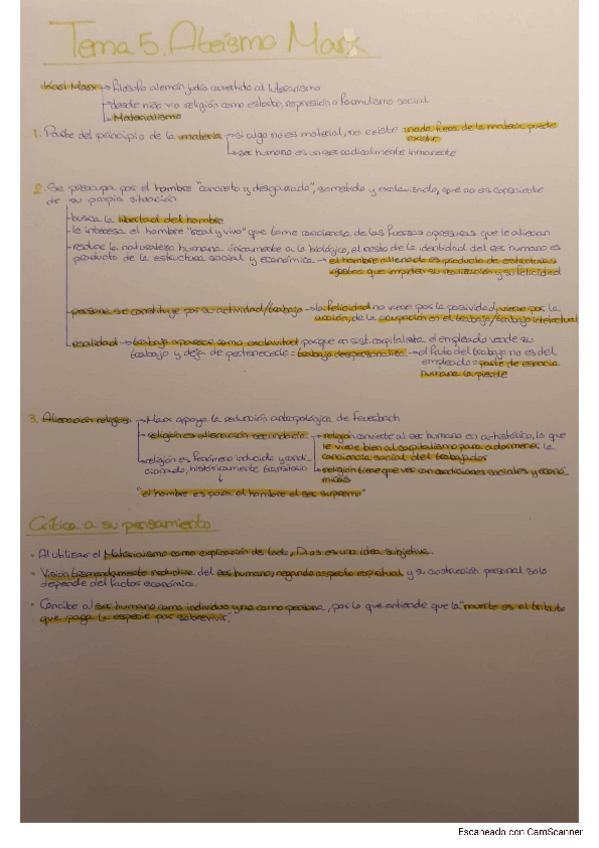 Tema 5. Ateísmo Marx
Karl Marx → filósofo alemán judío convertido al luteranismo
→ desde niño vio religión como estorbo, represión o formalismo social
→ Materialismo
1. Parte del principio de la materia → si algo no es material, no existe nada fuera de la materia puede
existir
→ ser humano es un ser radicalmente inmanente
2. Se preocupa por el hombre "concreto y desgarrado", sometido y esclavizado, que no es consciente
de su propia situación
- busca la libertad del hombre
- le interesa el hombre "real y vivo" que tome conciencia de las fuerzas opresoras que le alienan
- reduce la naturaleza humana únicamente a lo biológico, el resto de la identidad del ser humano es
producto de la estructura social y económica → el hombre alienado es producto de estructuras
injustas que impiden su realización y su felicidad
- persona se constituye por su actividad/trabajo → la felicidad no viene por la pasividad, viene por la
acción, de la ocupación en el trabajo/trabajo intelectual
- realidad → trabajo aparece como esclavitud, porque en sist. capitalista el empleado vende su
trabajo y deja de pertenecerle = trabajo despersonaliza → el fruto del trabajo no es del
empleado = parte de esencia
humana la pierde
3. Alienación religiosa → Marx apoya la reducción antropológica de Feuerbach
→ religión es alienación secundaria → religión convierte al ser humano en a-histórico, lo que
le viene bien al capitalismo para adormecer la
conciencia social del trabajador
→ religión es fenómeno inducido y condi-
cionado, históricamente transitorio
→ religión tiene que ver con condiciones sociales y econó-
micas
"el hombre es para el hombre el ser supremo"
Crítica a su pensamiento
· Al utilizar el Materialismo como explicación de todo, Dios es una idea subjetiva.
· Visión tremendamente reductiva del ser humano, negando aspecto espiritual y su construcción personal solo
depende del factor económico.
· Concibe al ser humano como individuo y no como persona, por lo que entiende que la "muerte es el tributo
que paga la especie por sobrevivir".
Escaneado con CamScanner